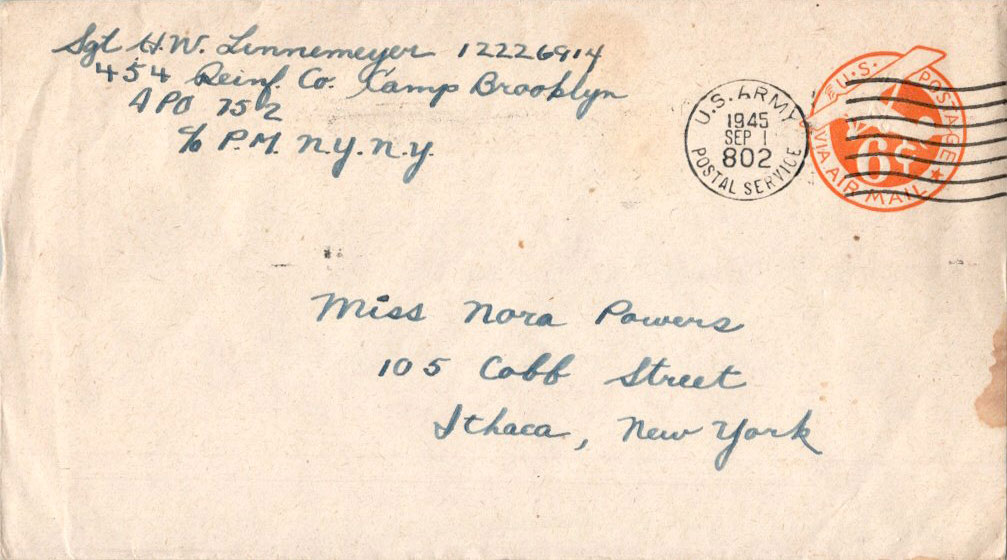 Sgt H.W. Linnemeyer 12226914
454 Reinf. Co. Camp Brooklyn
APO 752
c/o P.M. N.Y. N.Y.
U.S. ARMY
1945
SEP 1
802
POSTAL SERVICE
U.S. POSTAGE
6¢
VIA AIR MAIL
Miss Nora Powers
105 Cobb Street
Ithaca, New York